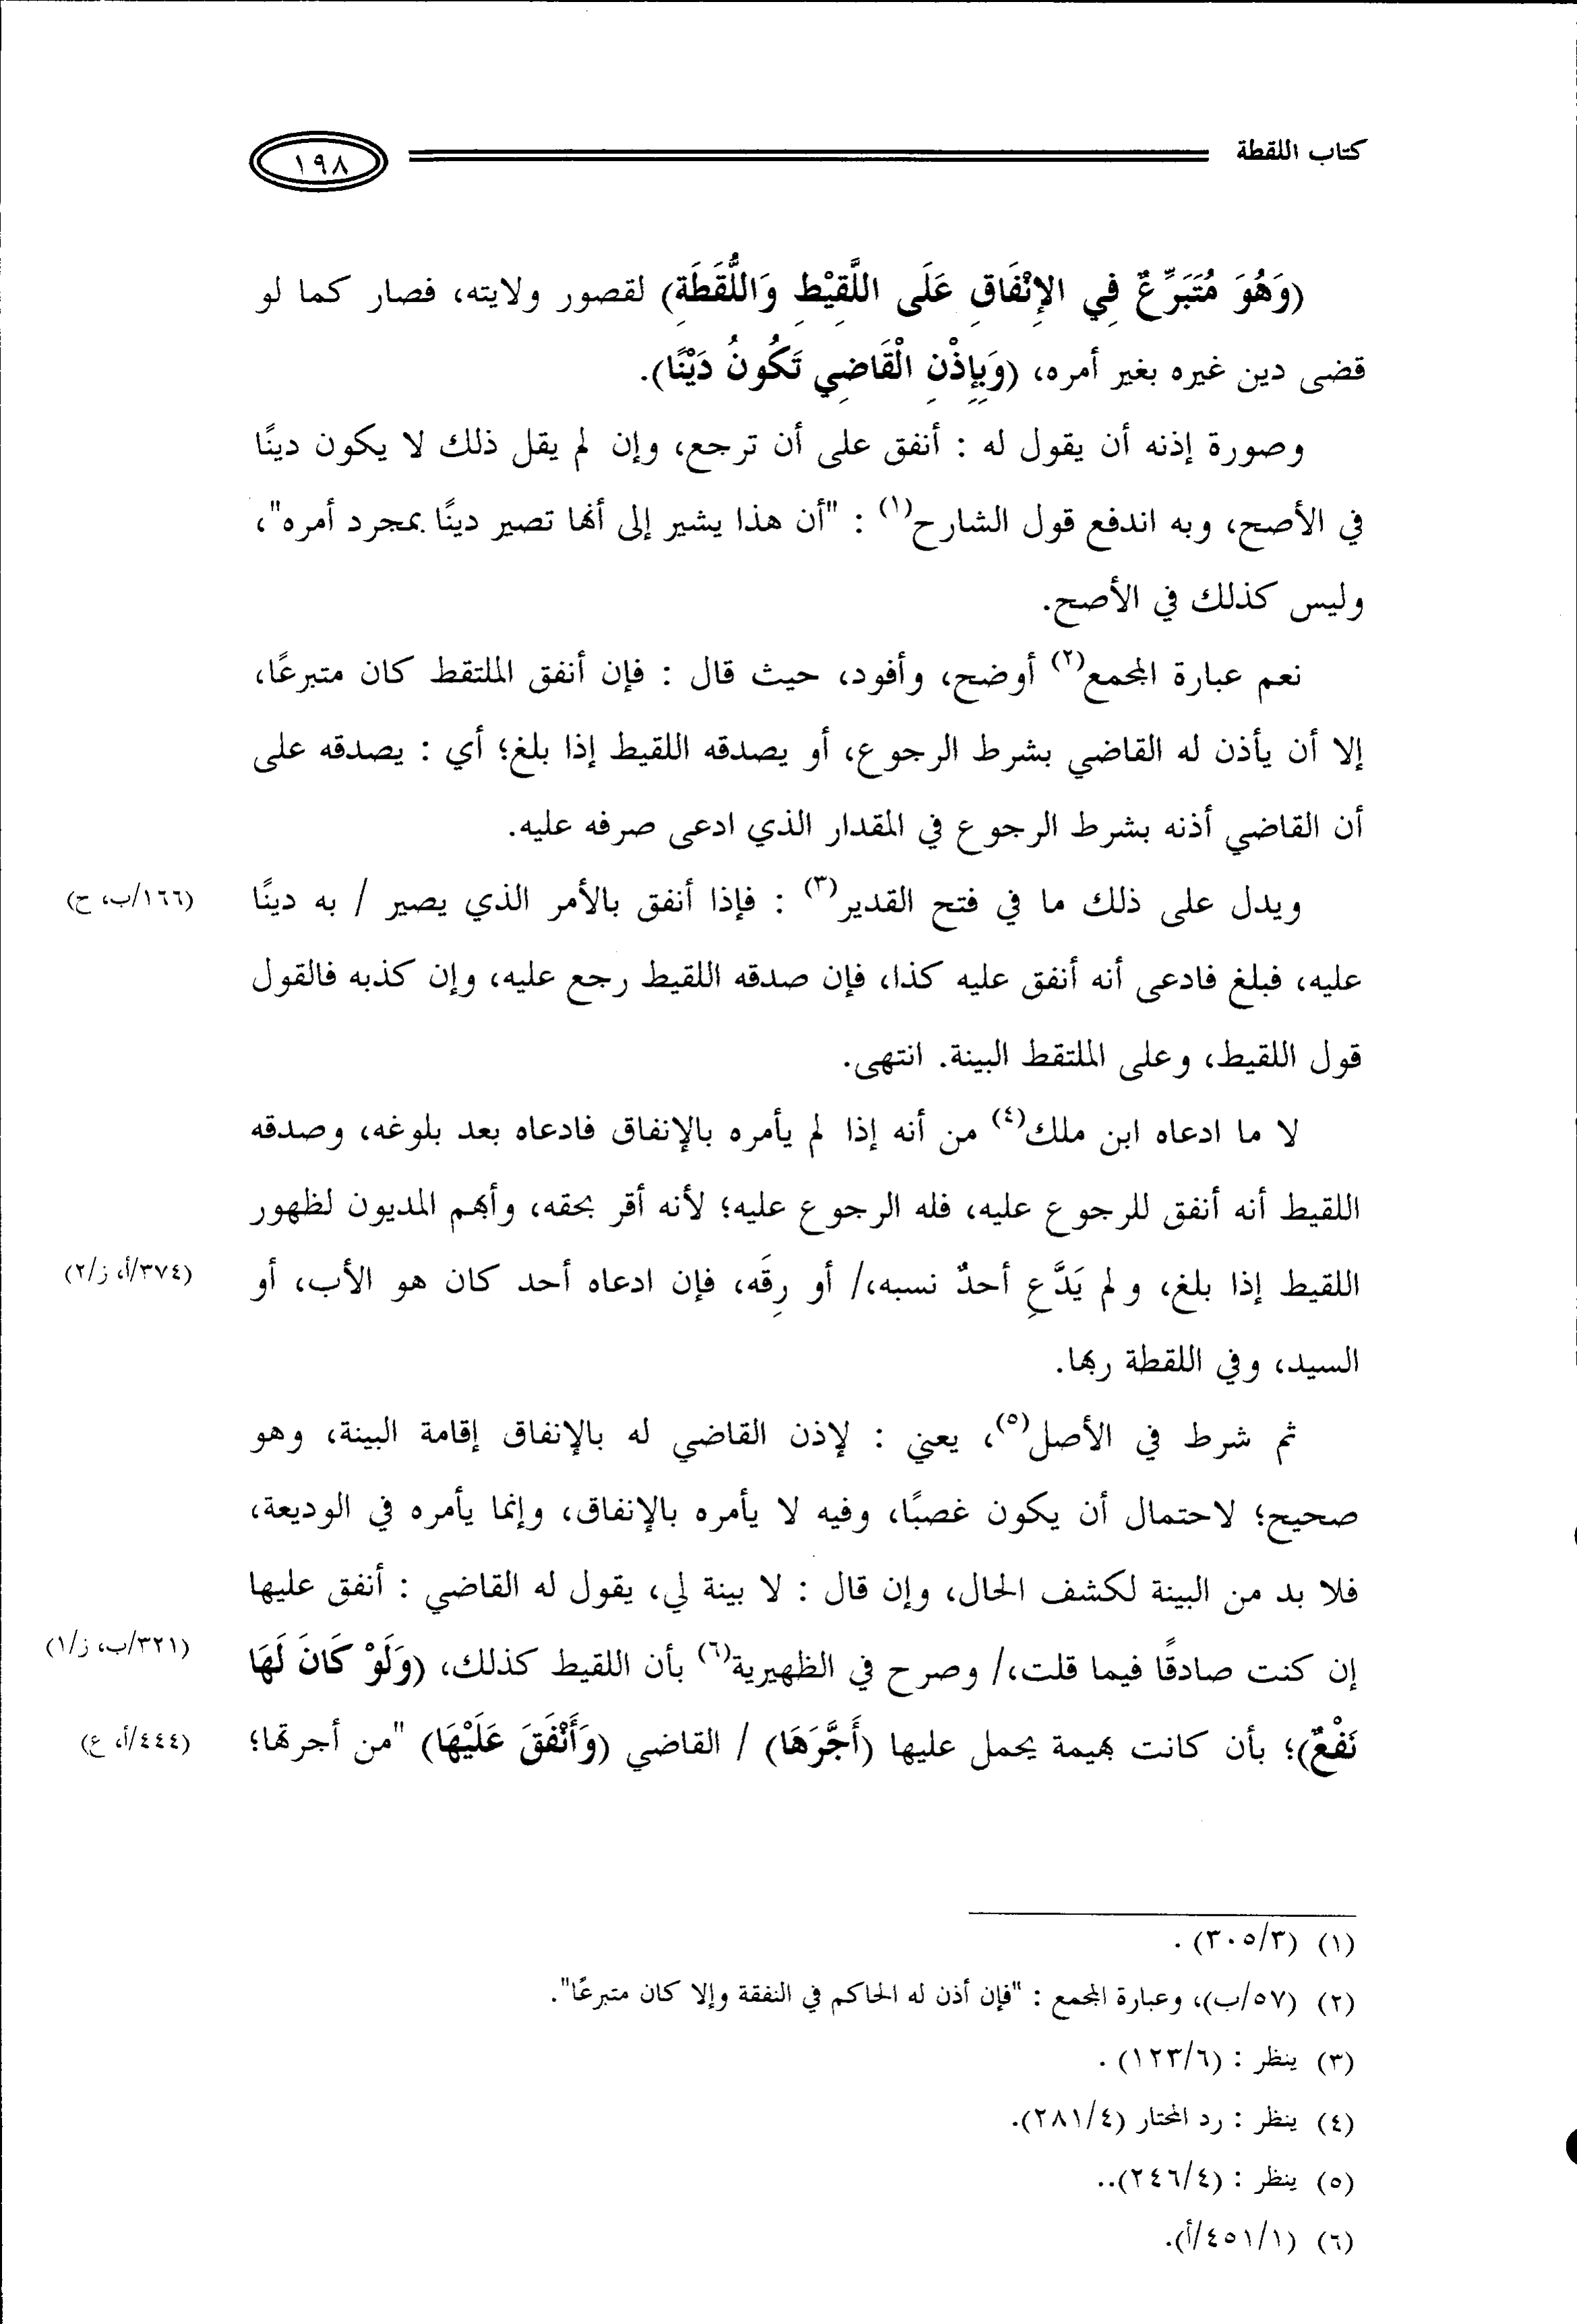 كتاب اللقطة
١٩٨
(وَهُوَ مُتَبَرِّعٌ فِي الإِنْفَاقِ عَلَى اللَّقِيْطِ وَاللُّقَطَةِ) لقصور ولايته، فصار كما لو
قضى دين غيره بغير أمره، (وَبِإِذْنِ الْقَاضِي تَكُونُ دَيْنًا).
وصورة إذنه أن يقول له : أنفق على أن ترجع، وإن لم يقل ذلك لا يكون دينًا
في الأصح، وبه اندفع قول الشارح(١) : "أن هذا يشير إلى أنها تصير دينًا بمجرد أمره"،
وليس كذلك في الأصح.
نعم عبارة المجمع(٢) أوضح، وأفود، حيث قال : فإن أنفق الملتقط كان متبرعًا،
إلا أن يأذن له القاضي بشرط الرجوع، أو يصدقه اللقيط إذا بلغ؛ أي : يصدقه على
أن القاضي أذنه بشرط الرجوع في المقدار الذي ادعى صرفه عليه.
ويدل على ذلك ما في فتح القدير(٣) : فإذا أنفق بالأمر الذي يصير / به دينًا
(١٦٦/ب، ح)
عليه، فبلغ فادعى أنه أنفق عليه كذا، فإن صدقه اللقيط رجع عليه، وإن كذبه فالقول
قول اللقيط، وعلى الملتقط البينة. انتهى.
لا ما ادعاه ابن ملك(٤) من أنه إذا لم يأمره بالإنفاق فادعاه بعد بلوغه، وصدقه
اللقيط أنه أنفق للرجوع عليه، فله الرجوع عليه؛ لأنه أقر بحقه، وأبهم المديون لظهور
اللقيط إذا بلغ، ولم يَدَّعِ أحدٌ نسبه،/ أو رِقَه، فإن ادعاه أحد كان هو الأب، أو
(٣٧٤/أ، ز/٢)
السيد، وفي اللقطة ربها.
ثم شرط في الأصل(٥)، يعني : لإذن القاضي له بالإنفاق إقامة البينة، وهو
صحيح؛ لاحتمال أن يكون غصبًا، وفيه لا يأمره بالإنفاق، وإنما يأمره في الوديعة،
فلا بد من البينة لكشف الحال، وإن قال : لا بينة لي، يقول له القاضي : أنفق عليها
إن كنت صادقًا فيما قلت،/ وصرح في الظهيرية(٦) بأن اللقيط كذلك، (وَلَوْ كَانَ لَهَا
(٣٢١/ب، ز/١)
نَفْعٌ)؛ بأن كانت بهيمة يحمل عليها (أَجَّرَهَا) / القاضي (وَأَنْفَقَ عَلَيْهَا) "من أجرتها؛
(٤٤٤/أ، ع)
(١) (٣٠٥/٣) .
(٢) (٥٧/ب)، وعبارة المجمع : "فإن أذن له الحاكم في النفقة وإلا كان متبرعًا".
(٣) ينظر : (١٢٣/٦) .
(٤) ينظر : رد المحتار (٢٨١/٤).
(٥) ينظر : (٢٤٦/٤)..
(٦) (٤٥١/١/أ).